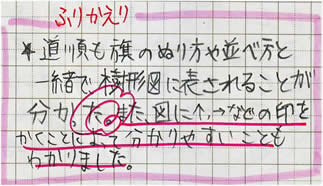 ふりかえり
* 道順も旗のぬり方や並べ方と
一緒で樹形図に表されることが
分かった。また、図に↑、→などの印を
かくことによって分かりやすいことも
わかりました。